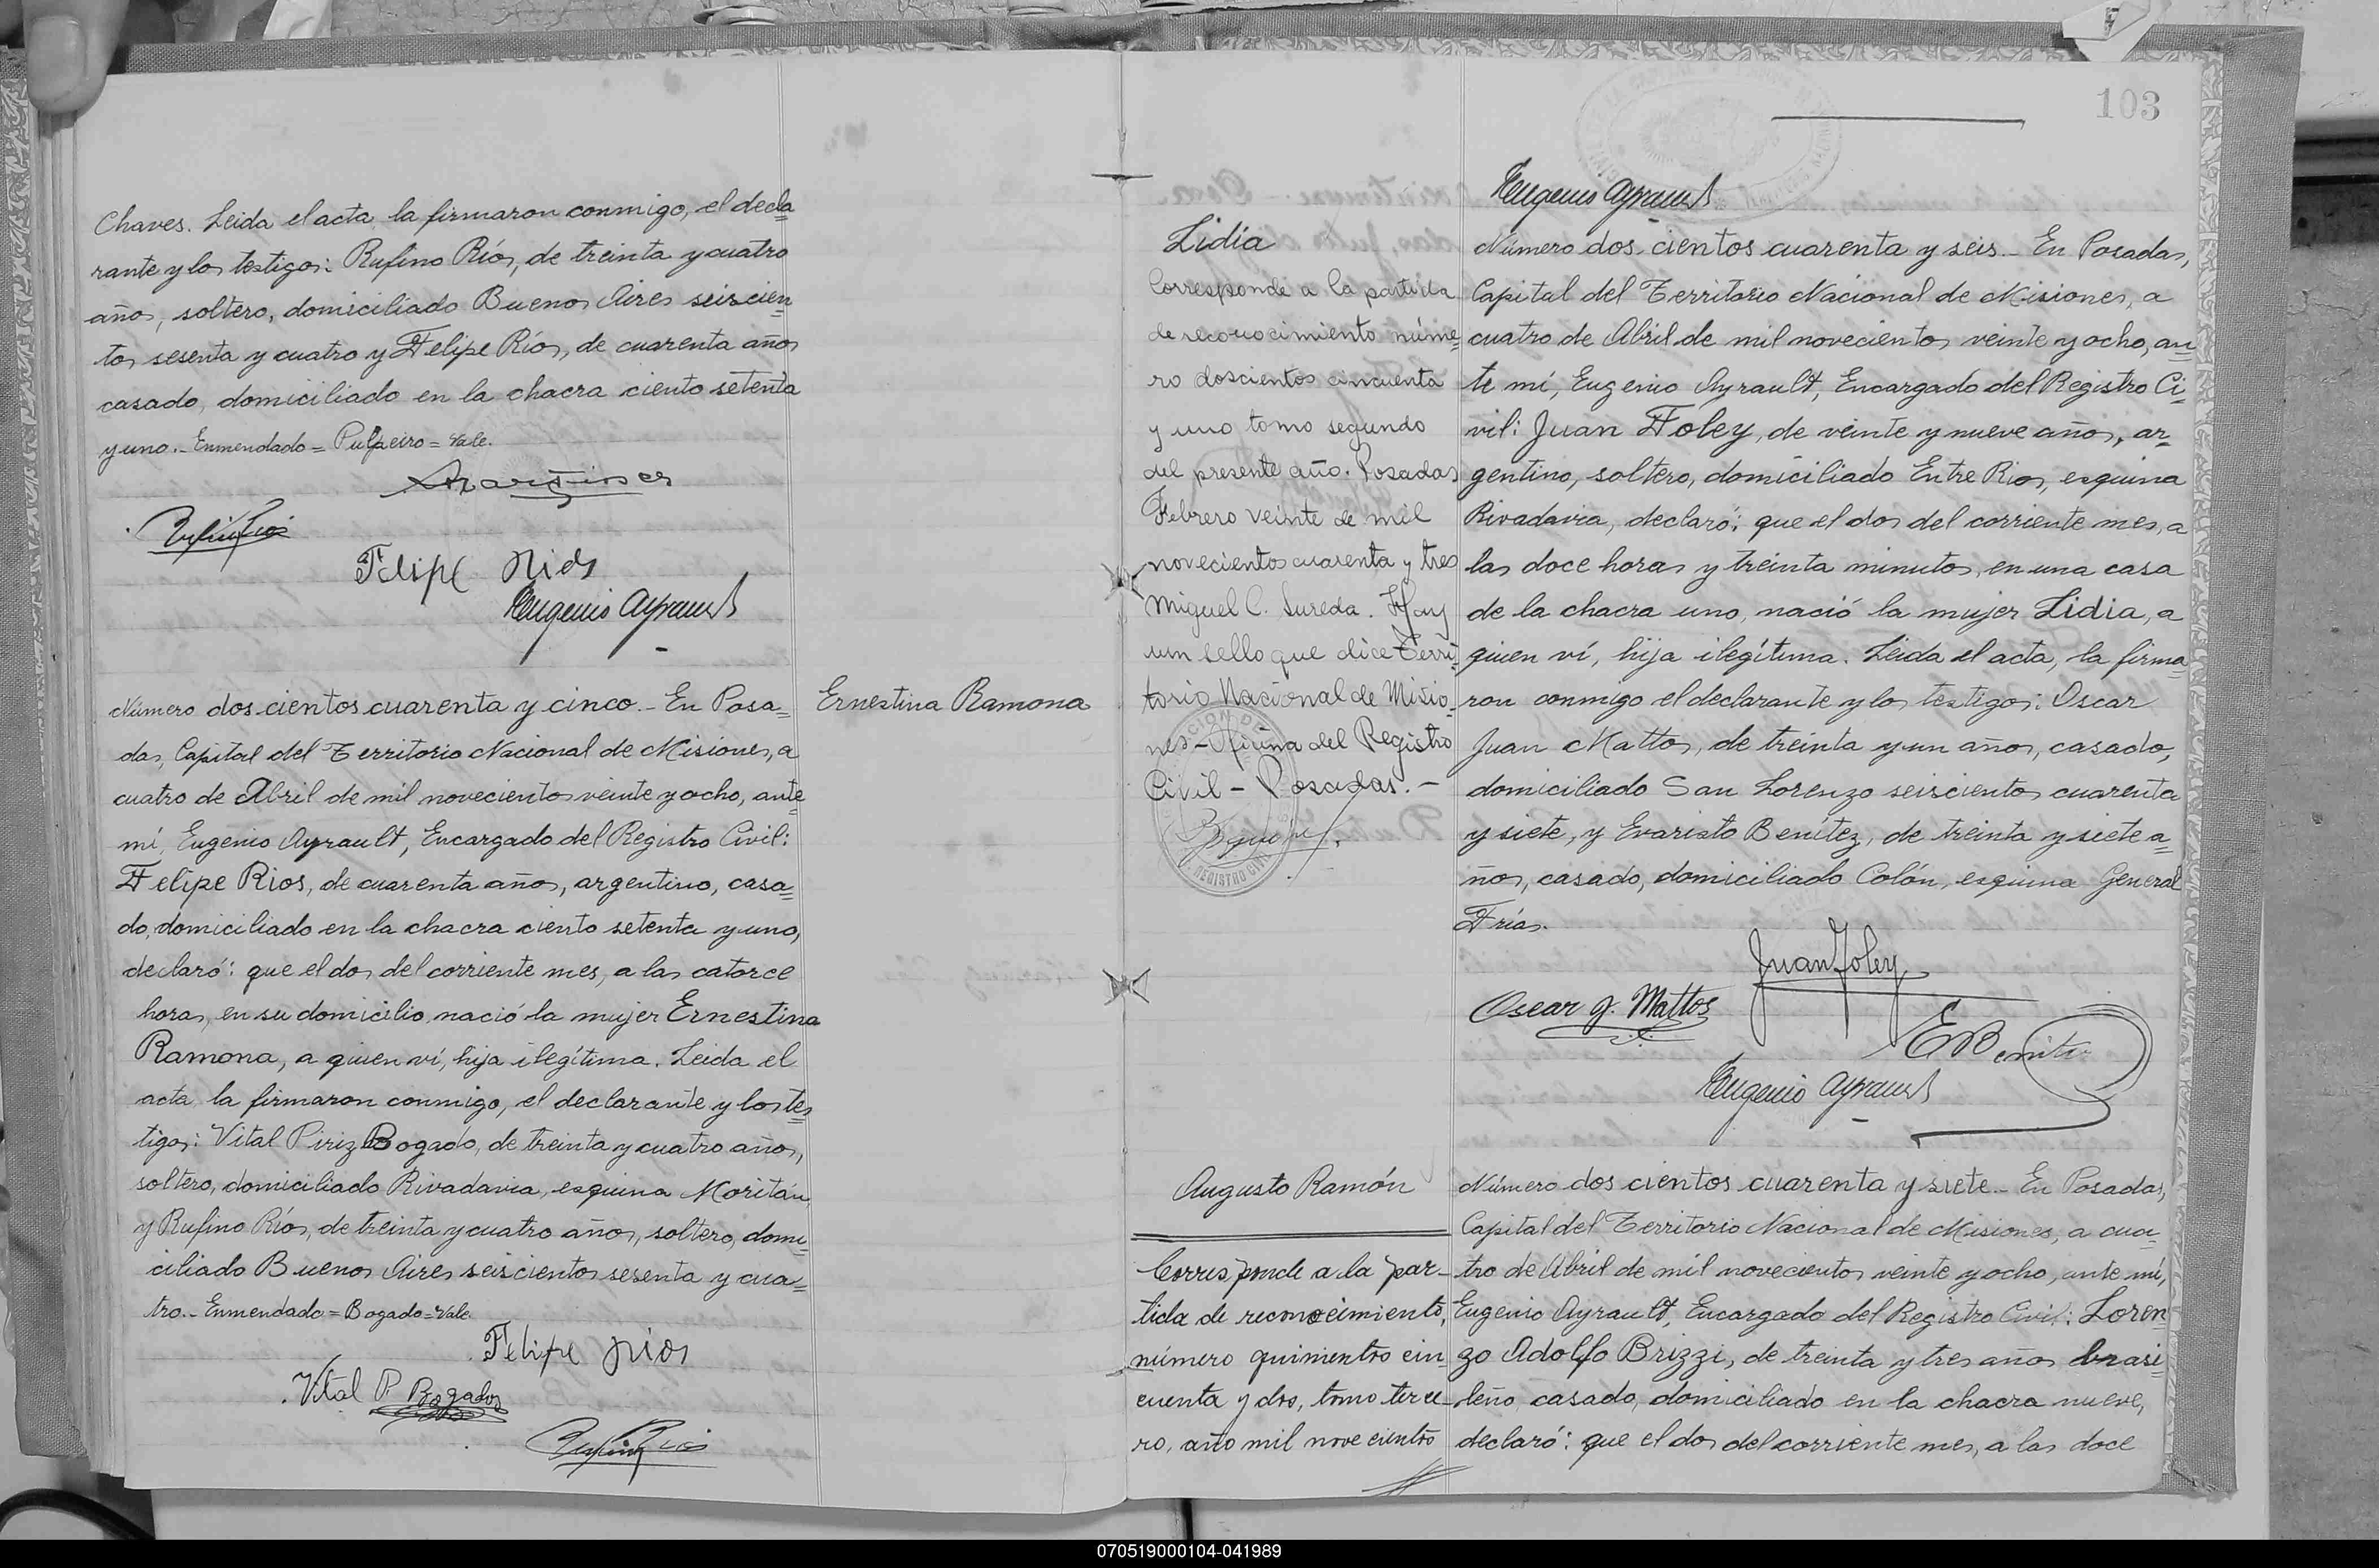 Chaves. Leida el acta, la firmaron conmigo, el decla
rante y los testigos: Rufino Ríos, de treinta y cuatro
años, soltero, domiciliado Buenos Aires seiscien
tos sesenta y cuatro y Felipe Ríos, de cuarenta años
casado, domiciliado en la chacra ciento setenta
y uno.- Enmendado = Pulpeiro = Vale.
Felipe Rios
Eugenio Ayrault
Número dos cientos cuarenta y cinco.- En Posa=
das, Capital del Territorio Nacional de Misiones, a
cuatro de Abril de mil novecientos veinte y ocho, ante
mí, Eugenio Ayrault, Encargado del Registro Civil:
Felipe Rios, de cuarenta años, argentino, casa=
do, domiciliado en la chacra ciento setenta y uno,
declaró: que el dos del corriente mes, a las catorce
horas, en su domicilio, nació la mujer Ernestina
Ramona, a quien ví, hija ilegítima. Leida el
acta, la firmaron conmigo, el declarante y los tes
tigos: Vital Piriz Bogado, de treinta y cuatro años,
soltero, domiciliado Rivadavia, esquina Moritán,
y Rufino Ríos, de treinta y cuatro años, soltero, domi=
ciliado Buenos Aires seiscientos sesenta y cua=
tro.- Enmendado = Bogado = Vale.
Felipe Rios
Vital P. Bogado
Ernestina Ramona
103
Eugenio Ayrault
Lidia
Corresponde a la partida
de reconocimiento núme=
ro doscientos cincuenta
y uno tomo segundo
del presente año. Posadas
Febrero veinte de mil
novecientos cuarenta y tres
Miguel C. Sureda. Hay
un sello que dice Terri=
torio Nacional de Misio=
nes - Oficina del Registro
Civil - Posadas. -
Número dos cientos cuarenta y seis.- En Posadas,
Capital del Territorio Nacional de Misiones, a
cuatro de Abril de mil novecientos veinte y ocho, an=
te mí, Eugenio Ayrault, Encargado del Registro Ci=
vil: Juan Foley, de veinte y nueve años, ar=
gentino, soltero, domiciliado Entre Rios, esquina
Rivadavia, declaró: que el dos del corriente mes, a
las doce horas y treinta minutos, en una casa
de la chacra uno, nació la mujer Lidia, a
quien ví, hija ilegítima. Leida el acta, la firma
ron conmigo el declarante y los testigos: Oscar
Juan Mattos, de treinta y un años, casado,
domiciliado San Lorenzo seiscientos cuarenta
y siete, y Evaristo Benítez, de treinta y siete a=
ños, casado, domiciliado Colón, esquina General
Frías.
Juan Foley
Oscar J. Mattos
E Benitez
Eugenio Ayrault
Augusto Ramón
Corresponde a la par-
tida de reconocimiento,
número quinientos cin
cuenta y dos, tomo terce-
ro, año mil novecientos
Número dos cientos cuarenta y siete.- En Posadas,
Capital del Territorio Nacional de Misiones, a cua=
tro de Abril de mil novecientos veinte y ocho, ante mí,
Eugenio Ayrault, Encargado del Registro Civil: Loren
zo Adolfo Brizzi, de treinta y tres años brasi
leño, casado, domiciliado en la chacra nueve,
declaró: que el dos del corriente mes, a las doce
070519000104-041989